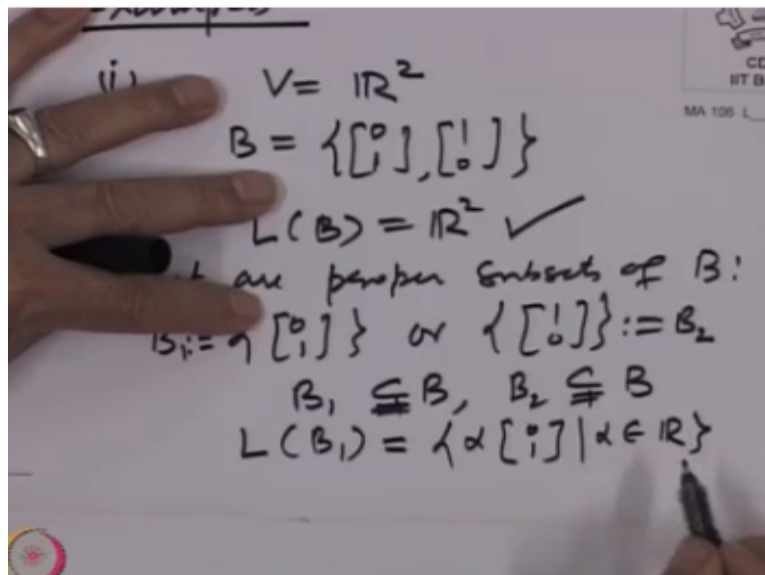 Examples
(i) V = ℝ²
B = {[0 1], [1 0]}
L(B) = ℝ² ✓
are proper subsets of B:
B₁ := {[0 1]} or {[1 0]} := B₂
B₁ ⊊ B, B₂ ⊊ B
L(B₁) = {α[0 1] | α ∈ ℝ}
CD
IIT B
MA 106 L